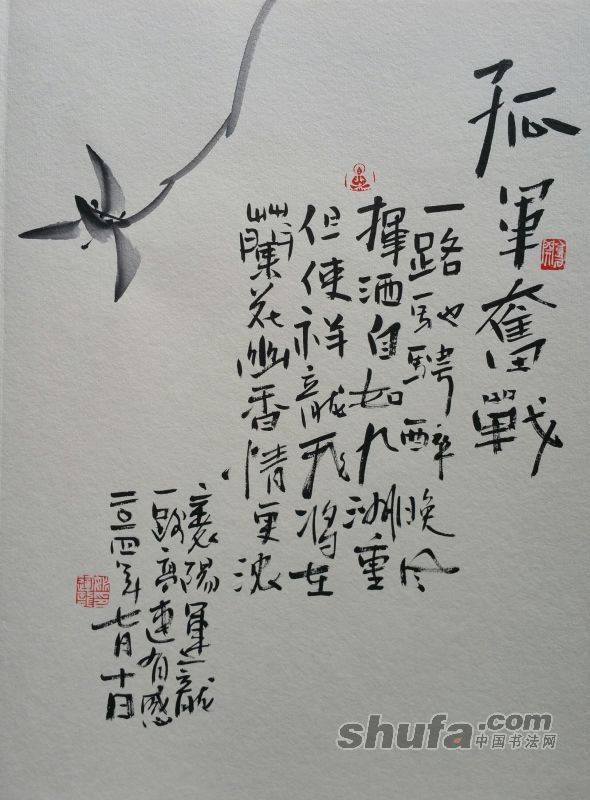 孤軍奮戰
一路馳騁醉晚风
揮洒自如九洲重
但使祥龍飛将在
蘭花幽香情更浓
襄陽運龍
一路高速有感
二〇一四年七月十日
shufa.com
中国书法网